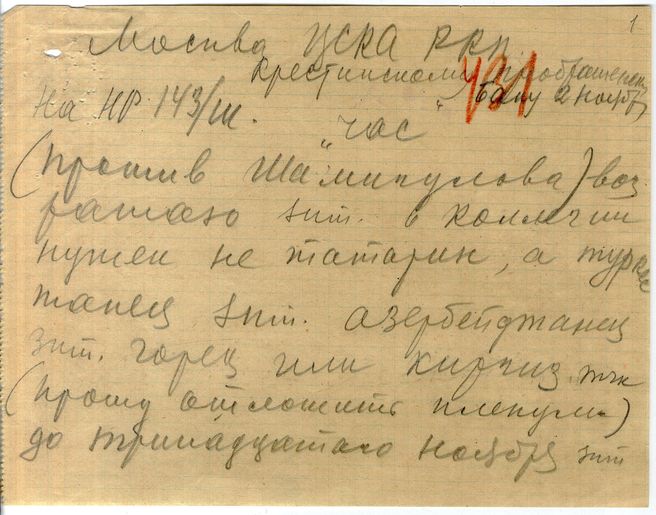 1
Москва ЦЕКА РКП
Крестинскому Преображенск
На НР 143/ш. Баку 2 ноябр
" час "
(Против Шамигулова) воз
ражаю зпт. в коллегии
нужен не татарин, а турке
танец зпт. азербейджанец
зпт. горец или киргиз тчк
(Прошу отложить пленум)
до тринадцатого ноября зпт